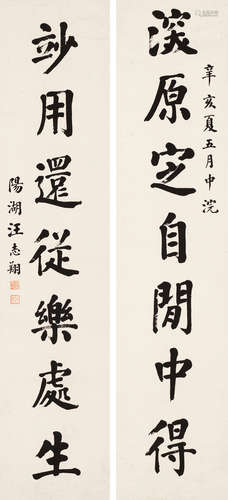 辛亥夏五月中浣
淡原定自閒中得
竗用還從樂處生
陽湖汪志翔